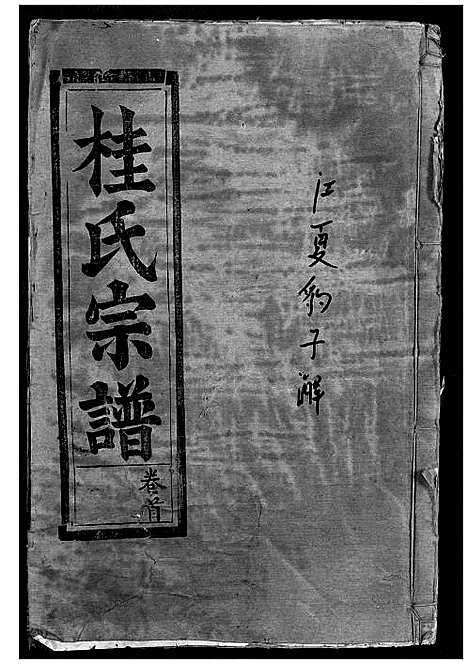 江夏豹子澥
桂氏宗譜
卷首